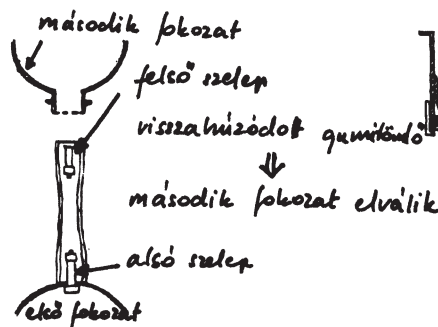 második fokozat
felső szelep
visszahúzódott gumitömlő
⇓
második fokozat elválik
alsó szelep
első fokozat